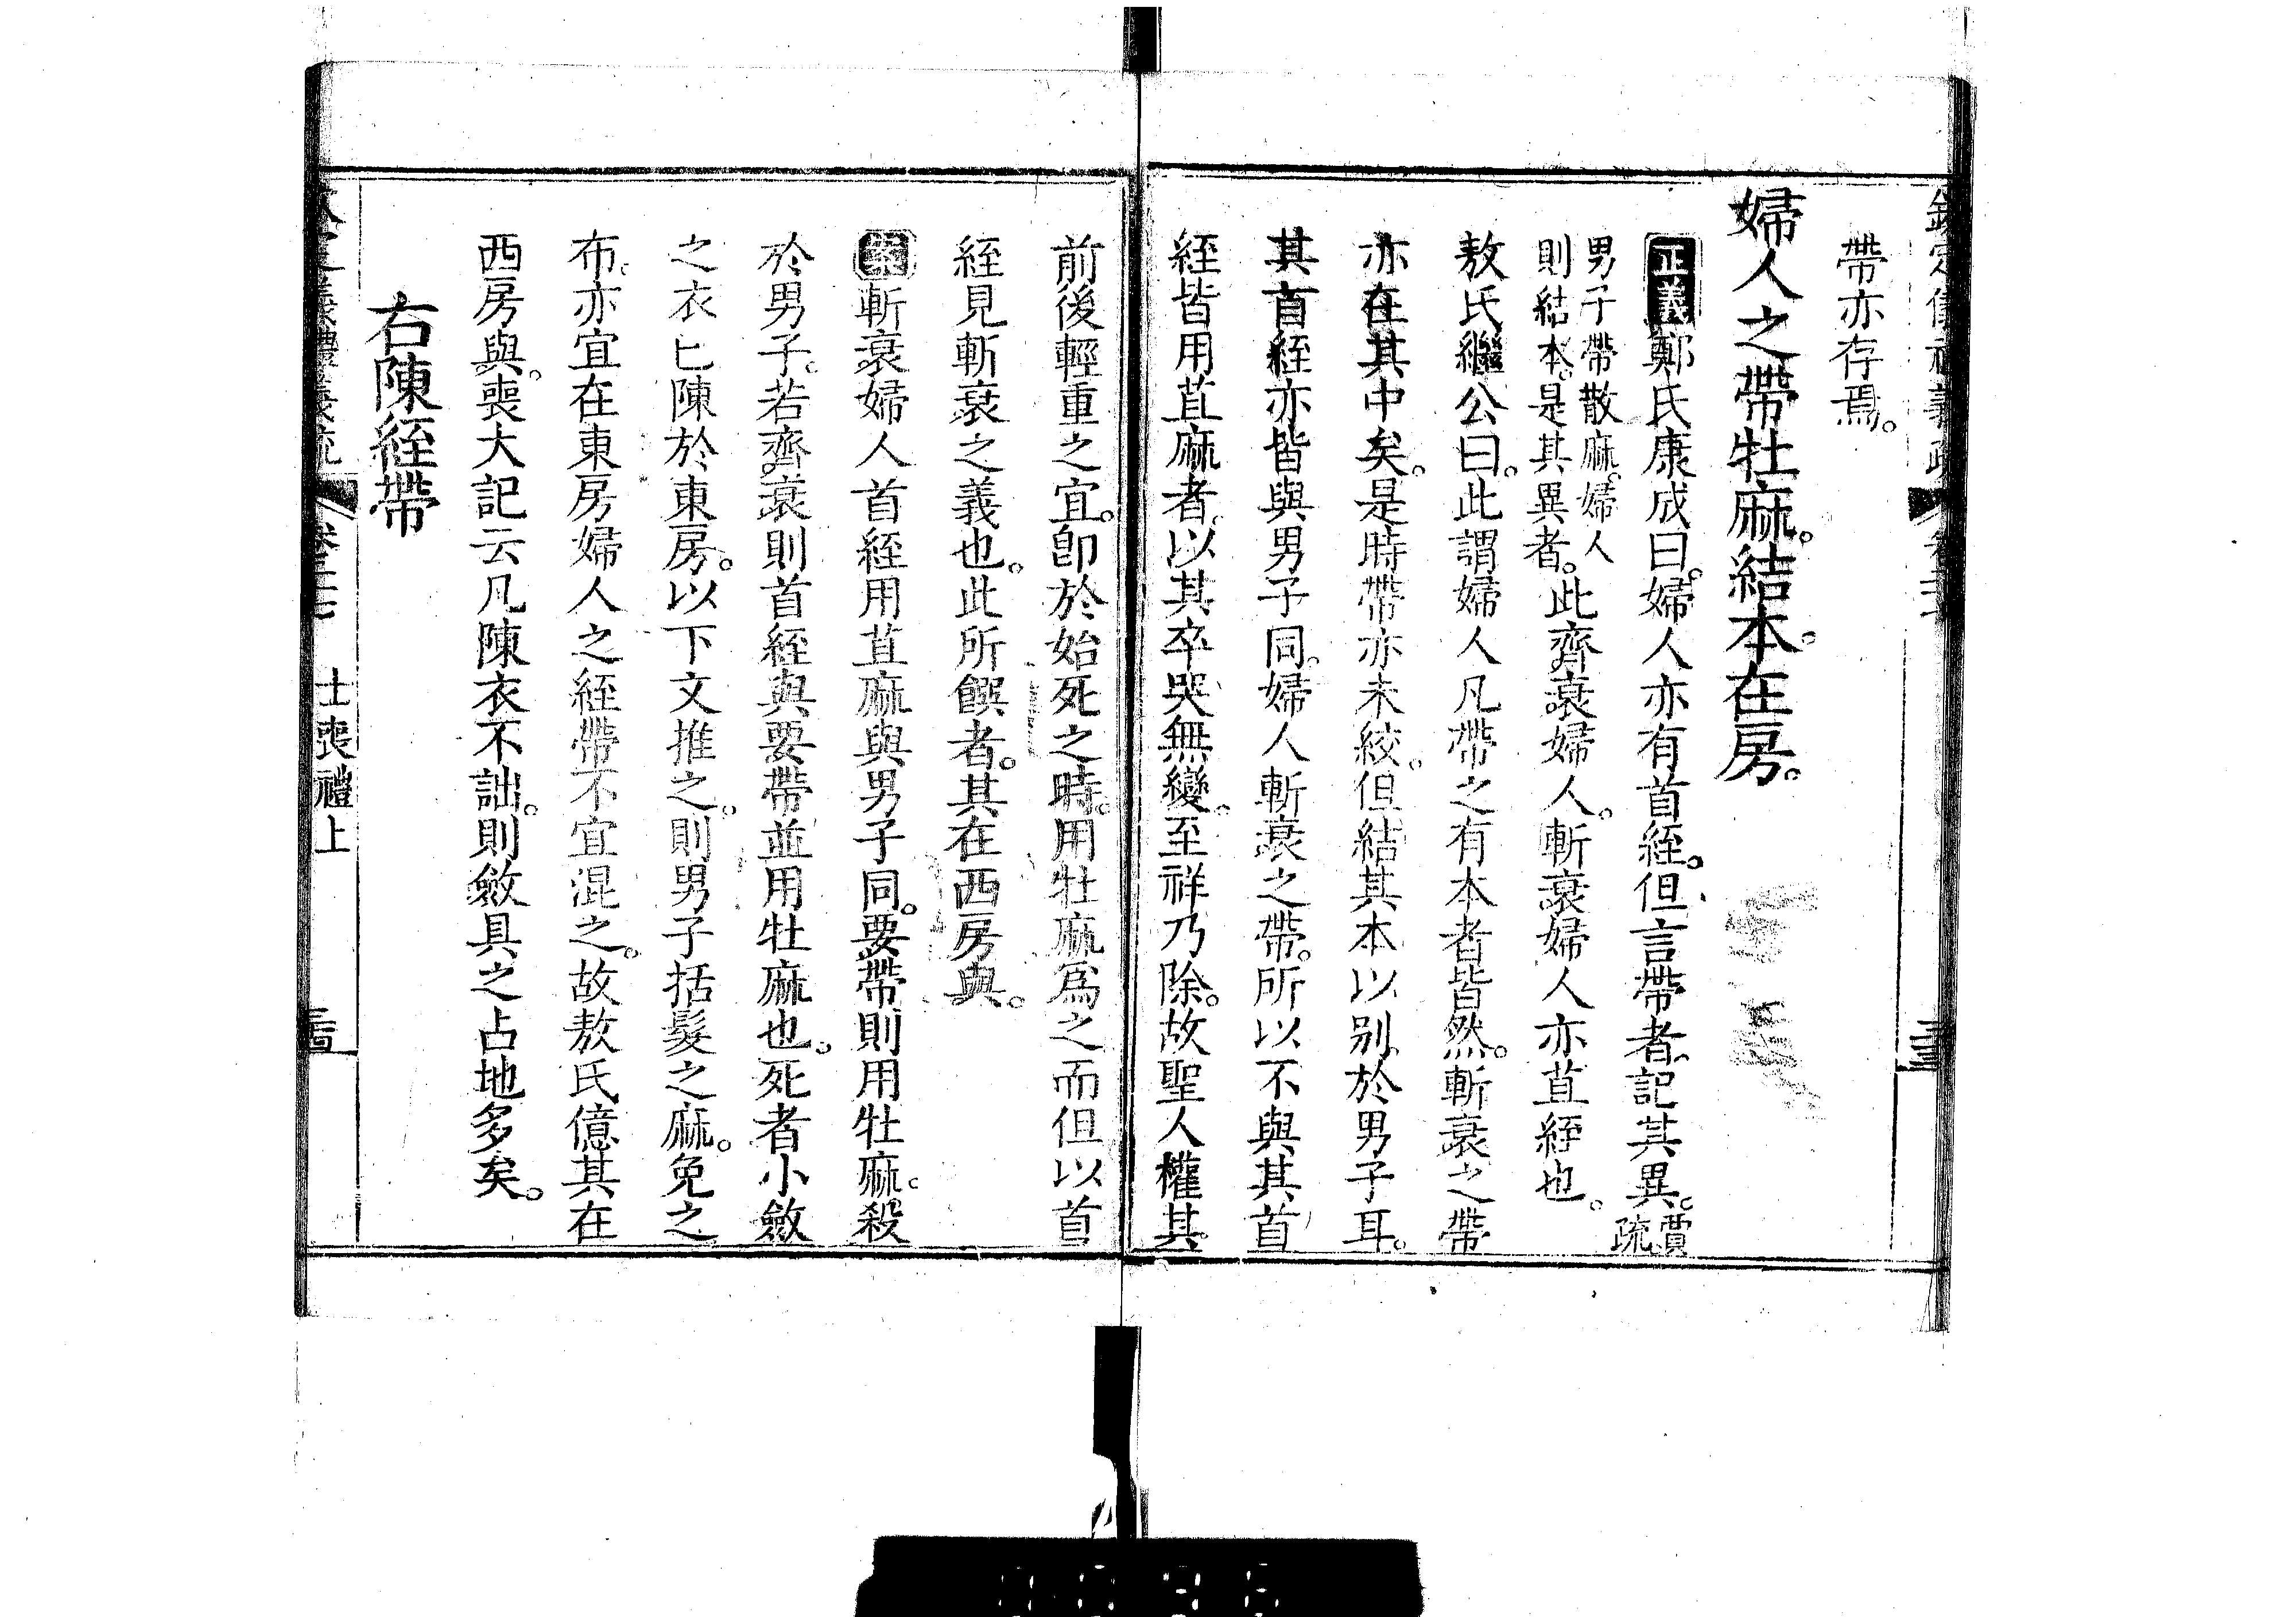 帶亦存焉。
婦人之帶牡麻。結本。在房。
正義鄭氏康成曰。婦人亦有首絰。但言帶者。記其異。賈疏
男子帶散麻。婦人
則結本。是其異者。
此齊衰婦人。斬衰婦人亦苴絰也。
敖氏繼公曰。此謂婦人凡帶之有本者皆然。斬衰之帶
亦在其中矣。是時帶亦未絞。但結其本以别於男子耳。
其首絰亦皆與男子同。婦人斬衰之帶。所以不與其首
絰皆用苴麻者。以其卒哭無變。至祥乃除。故聖人權其
前後輕重之宜。卽於始死之時。用牡麻爲之而但以首
絰見斬衰之義也。此所饌者。其在西房與。
案斬衰婦人首絰用苴麻與男子同。要帶則用牡麻。殺
於男子。若齊衰則首絰與要帶並用牡麻也。死者小斂
之衣已陳於東房。以下文推之。則男子括髮之麻。免之
布。亦宜在東房婦人之絰帶不宜混之。故敖氏億其在
西房與。喪大記云凡陳衣不詘。則斂具之占地多矣。
右陳絰帶
士喪禮上